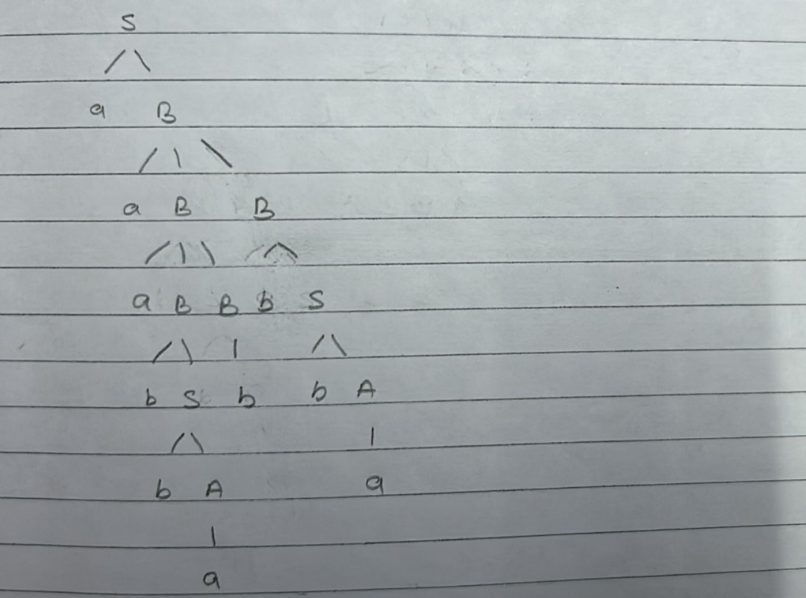 S
a B
a B B
a B B b S
b S b b A
b A a
a